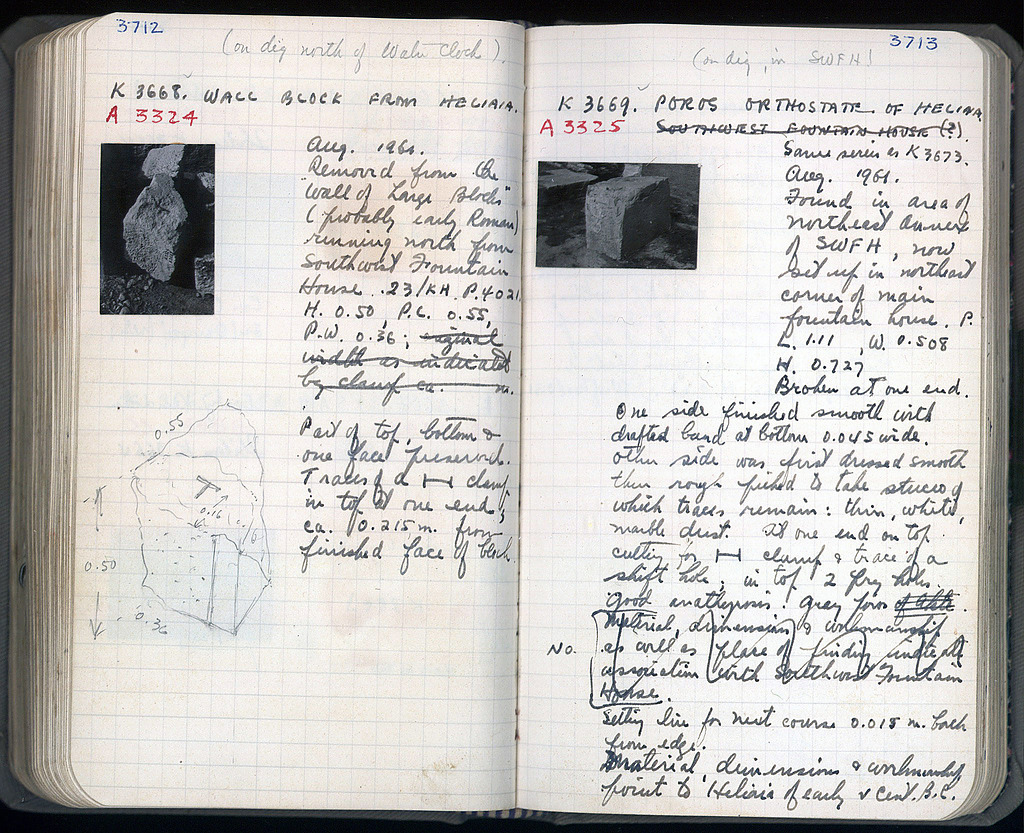 3712
(on dig north of Water Clock).
K 3668. WALL BLOCK FROM HELIAIA.
A 3324
Aug. 1961.
Removed from the
"Wall of Large Blocks"
(probably early Roman)
running north from
Southwest Fountain
House. 23/KH. P. 4021.
H. 0.50, P.L. 0.55,
P.W. 0.36; original
width as indicated
by clamp ca. m.
Part of top, bottom &
one face preserved.
Traces of a H clamp
in top at one end,
ca. 0.215 m. from
finished face of block.
0.55
T
0.16
0.50
0.36
3713
(on dig, in SWFH!
K 3669. POROS ORTHOSTATE OF HELIAIA
A 3325 SOUTHWEST FOUNTAIN HOUSE (?).
Same series as K 3673.
Aug. 1961.
Found in area of
northeast annex
of SWFH, now
set up in northeast
corner of main
fountain house. P.
L. 1.11, W. 0.508
H. 0.727
Broken at one end.
One side finished smooth with
drafted band at bottom 0.045 wide.
Other side was first dressed smooth
then rough picked to take stucco of
which traces remain: thin, white,
marble dust. At one end on top
cutting for H clamp & trace of a
shift hole; in top 2 pry holes.
Good anathyrosis. Gray poros
Material, dimensions & workmanship
No. as well as place of finding indicate
association with Southwest Fountain
House.
Setting line for next course 0.015 m. back
from edge.
Material, dimensions & workmanship
point to Heliaia of early V cent. B.C.